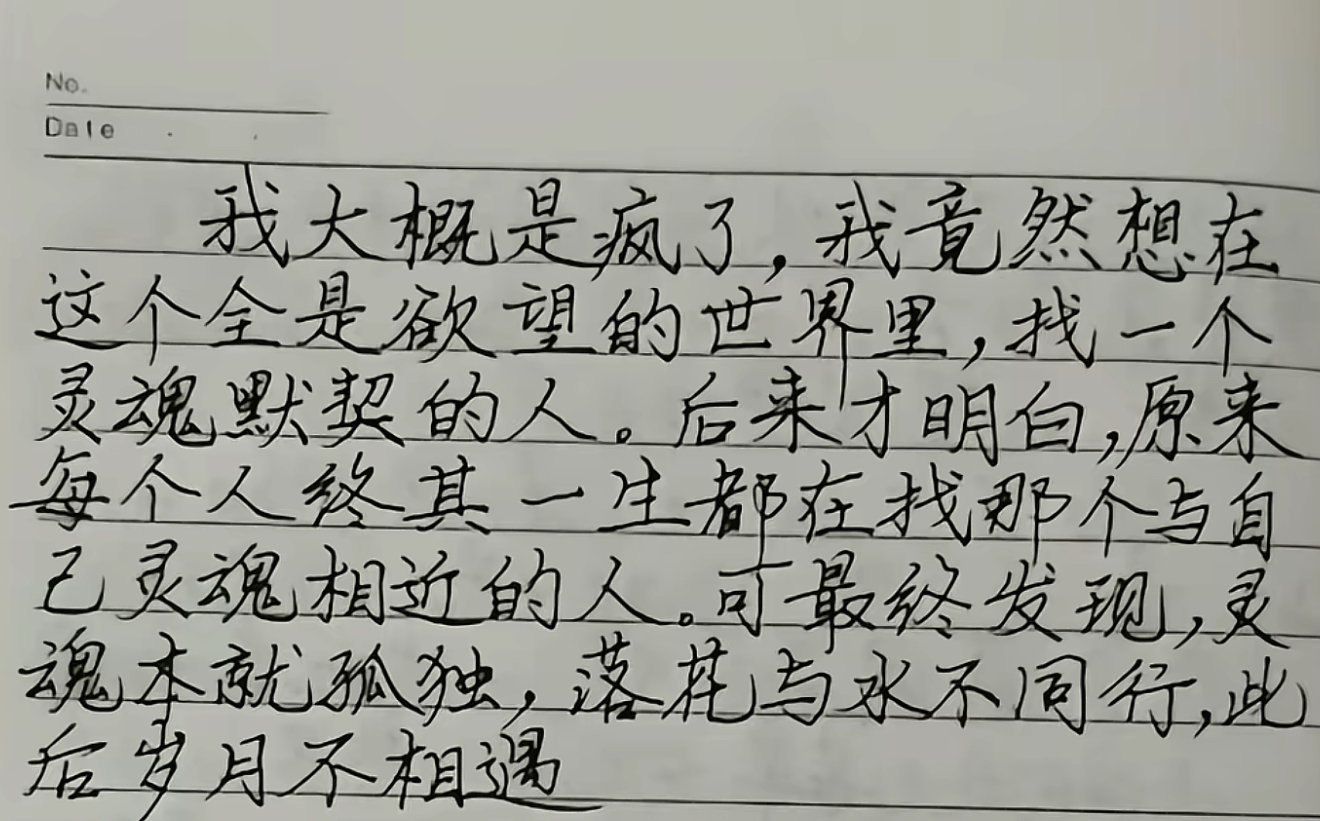 No.
Date
我大概是疯了,我竟然想在
这个全是欲望的世界里,找一个
灵魂默契的人。后来才明白,原来
每个人终其一生都在找那个与自
己灵魂相近的人。可最终发现,灵
魂本就孤独,落花与水不同行,此
后岁月不相遇